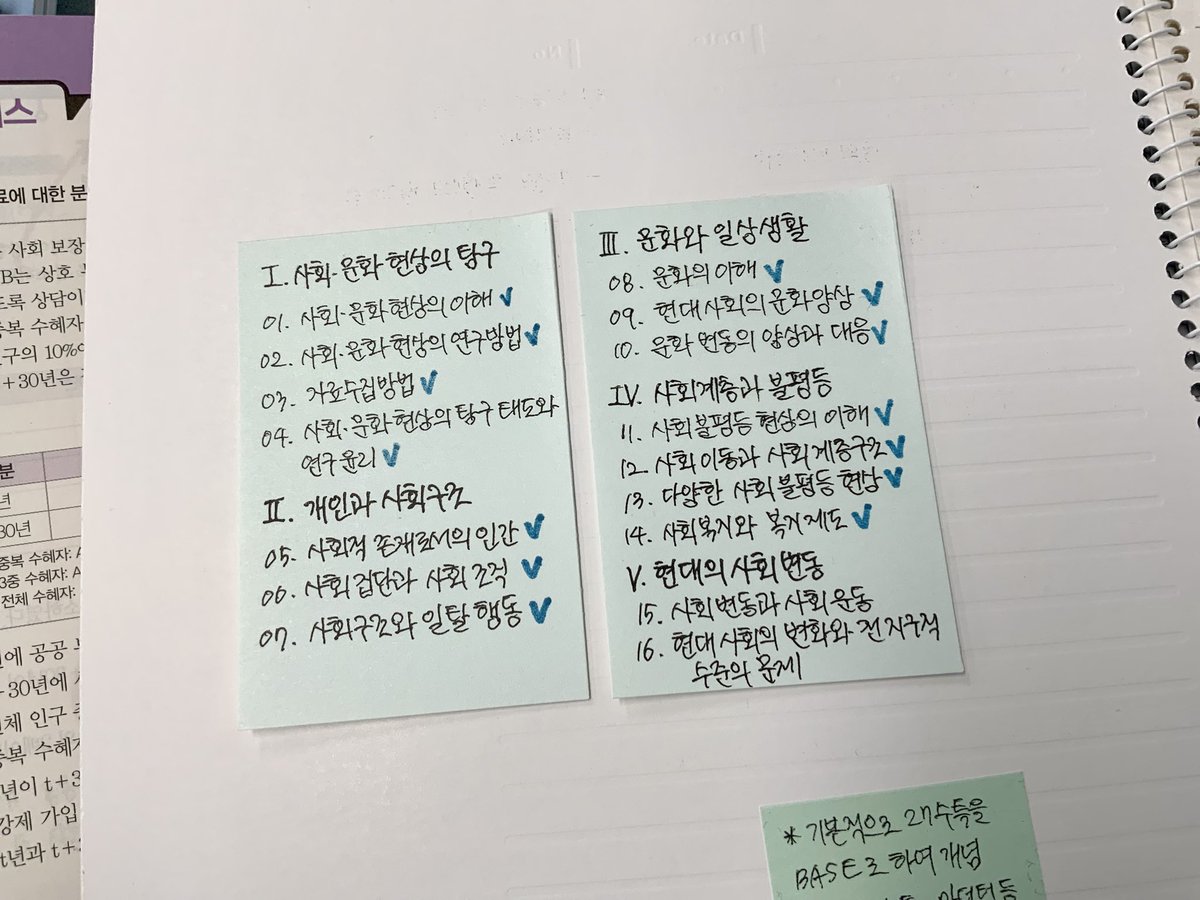 스
료에 대한 분
사회 보장
B는 상호
록 상담이
중복 수혜자
구의 10%
+30년은
분
년
30년
중복 수혜자: A
3중 수혜자: A
전체 수혜자:
년에 공공
30년에
전체 인구
중복 수혜자
년이 t+3
강제 가입
t년과 t+
Ⅰ. 사회·문화 현상의 탐구
01. 사회·문화 현상의 이해 ✓
02. 사회·문화 현상의 연구방법 ✓
03. 자료수집방법 ✓
04. 사회·문화 현상의 탐구 태도와
연구 윤리 ✓
Ⅱ. 개인과 사회구조
05. 사회적 존재로서의 인간 ✓
06. 사회 집단과 사회 조직 ✓
07. 사회구조와 일탈 행동 ✓
Ⅲ. 문화와 일상생활
08. 문화의 이해 ✓
09. 현대 사회의 문화 양상 ✓
10. 문화 변동의 양상과 대응 ✓
Ⅳ. 사회계층과 불평등
11. 사회불평등 현상의 이해 ✓
12. 사회 이동과 사회 계층구조 ✓
13. 다양한 사회 불평등 현상 ✓
14. 사회복지와 복지 제도 ✓
Ⅴ. 현대의 사회 변동
15. 사회 변동과 사회 운동
16. 현대 사회의 변화와 전 지구적
수준의 문제
* 기본적으로 27수특을
BASE로 하여 개념